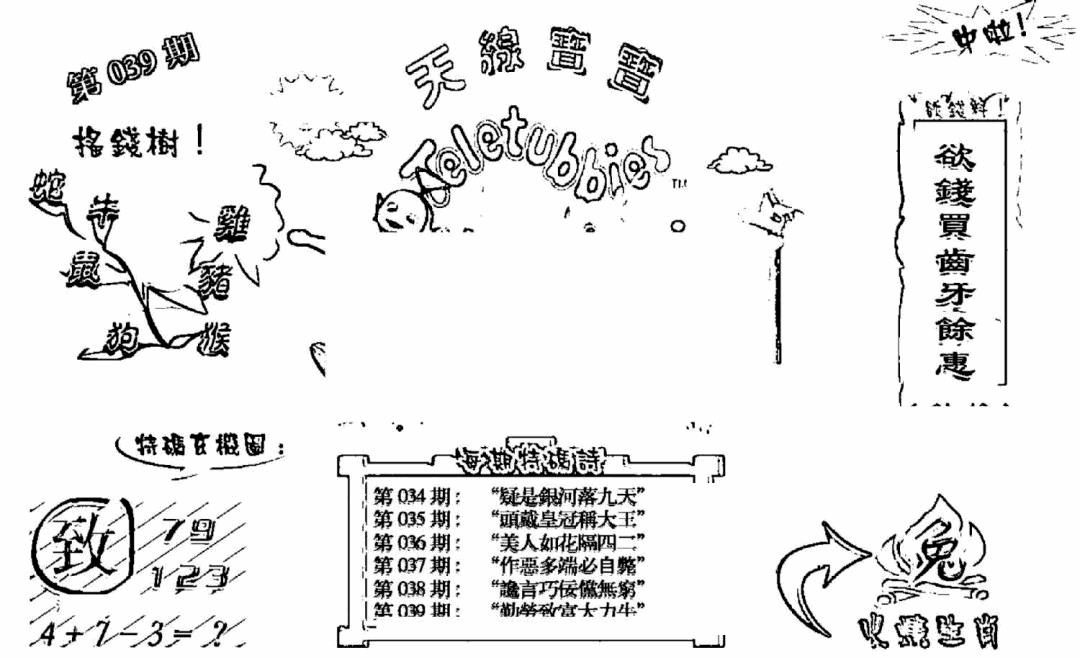 第 039 期
天線寶寶
中啦！
搖錢樹！
Teletubbies
TM
蛇
牛
雞
鼠
豬
狗
猴
欲錢買齒牙餘惠
特碼玄機圖：
致
79
123
4+7-3=?
每期特碼詩
第 034 期： “疑是銀河落九天”
第 035 期： “頭戴皇冠稱大王”
第 036 期： “美人如花隔四二”
第 037 期： “作惡多端必自斃”
第 038 期： “讒言巧佞憮無窮”
第 039 期： “勤勞致富大力牛”
兔
火燒生肖